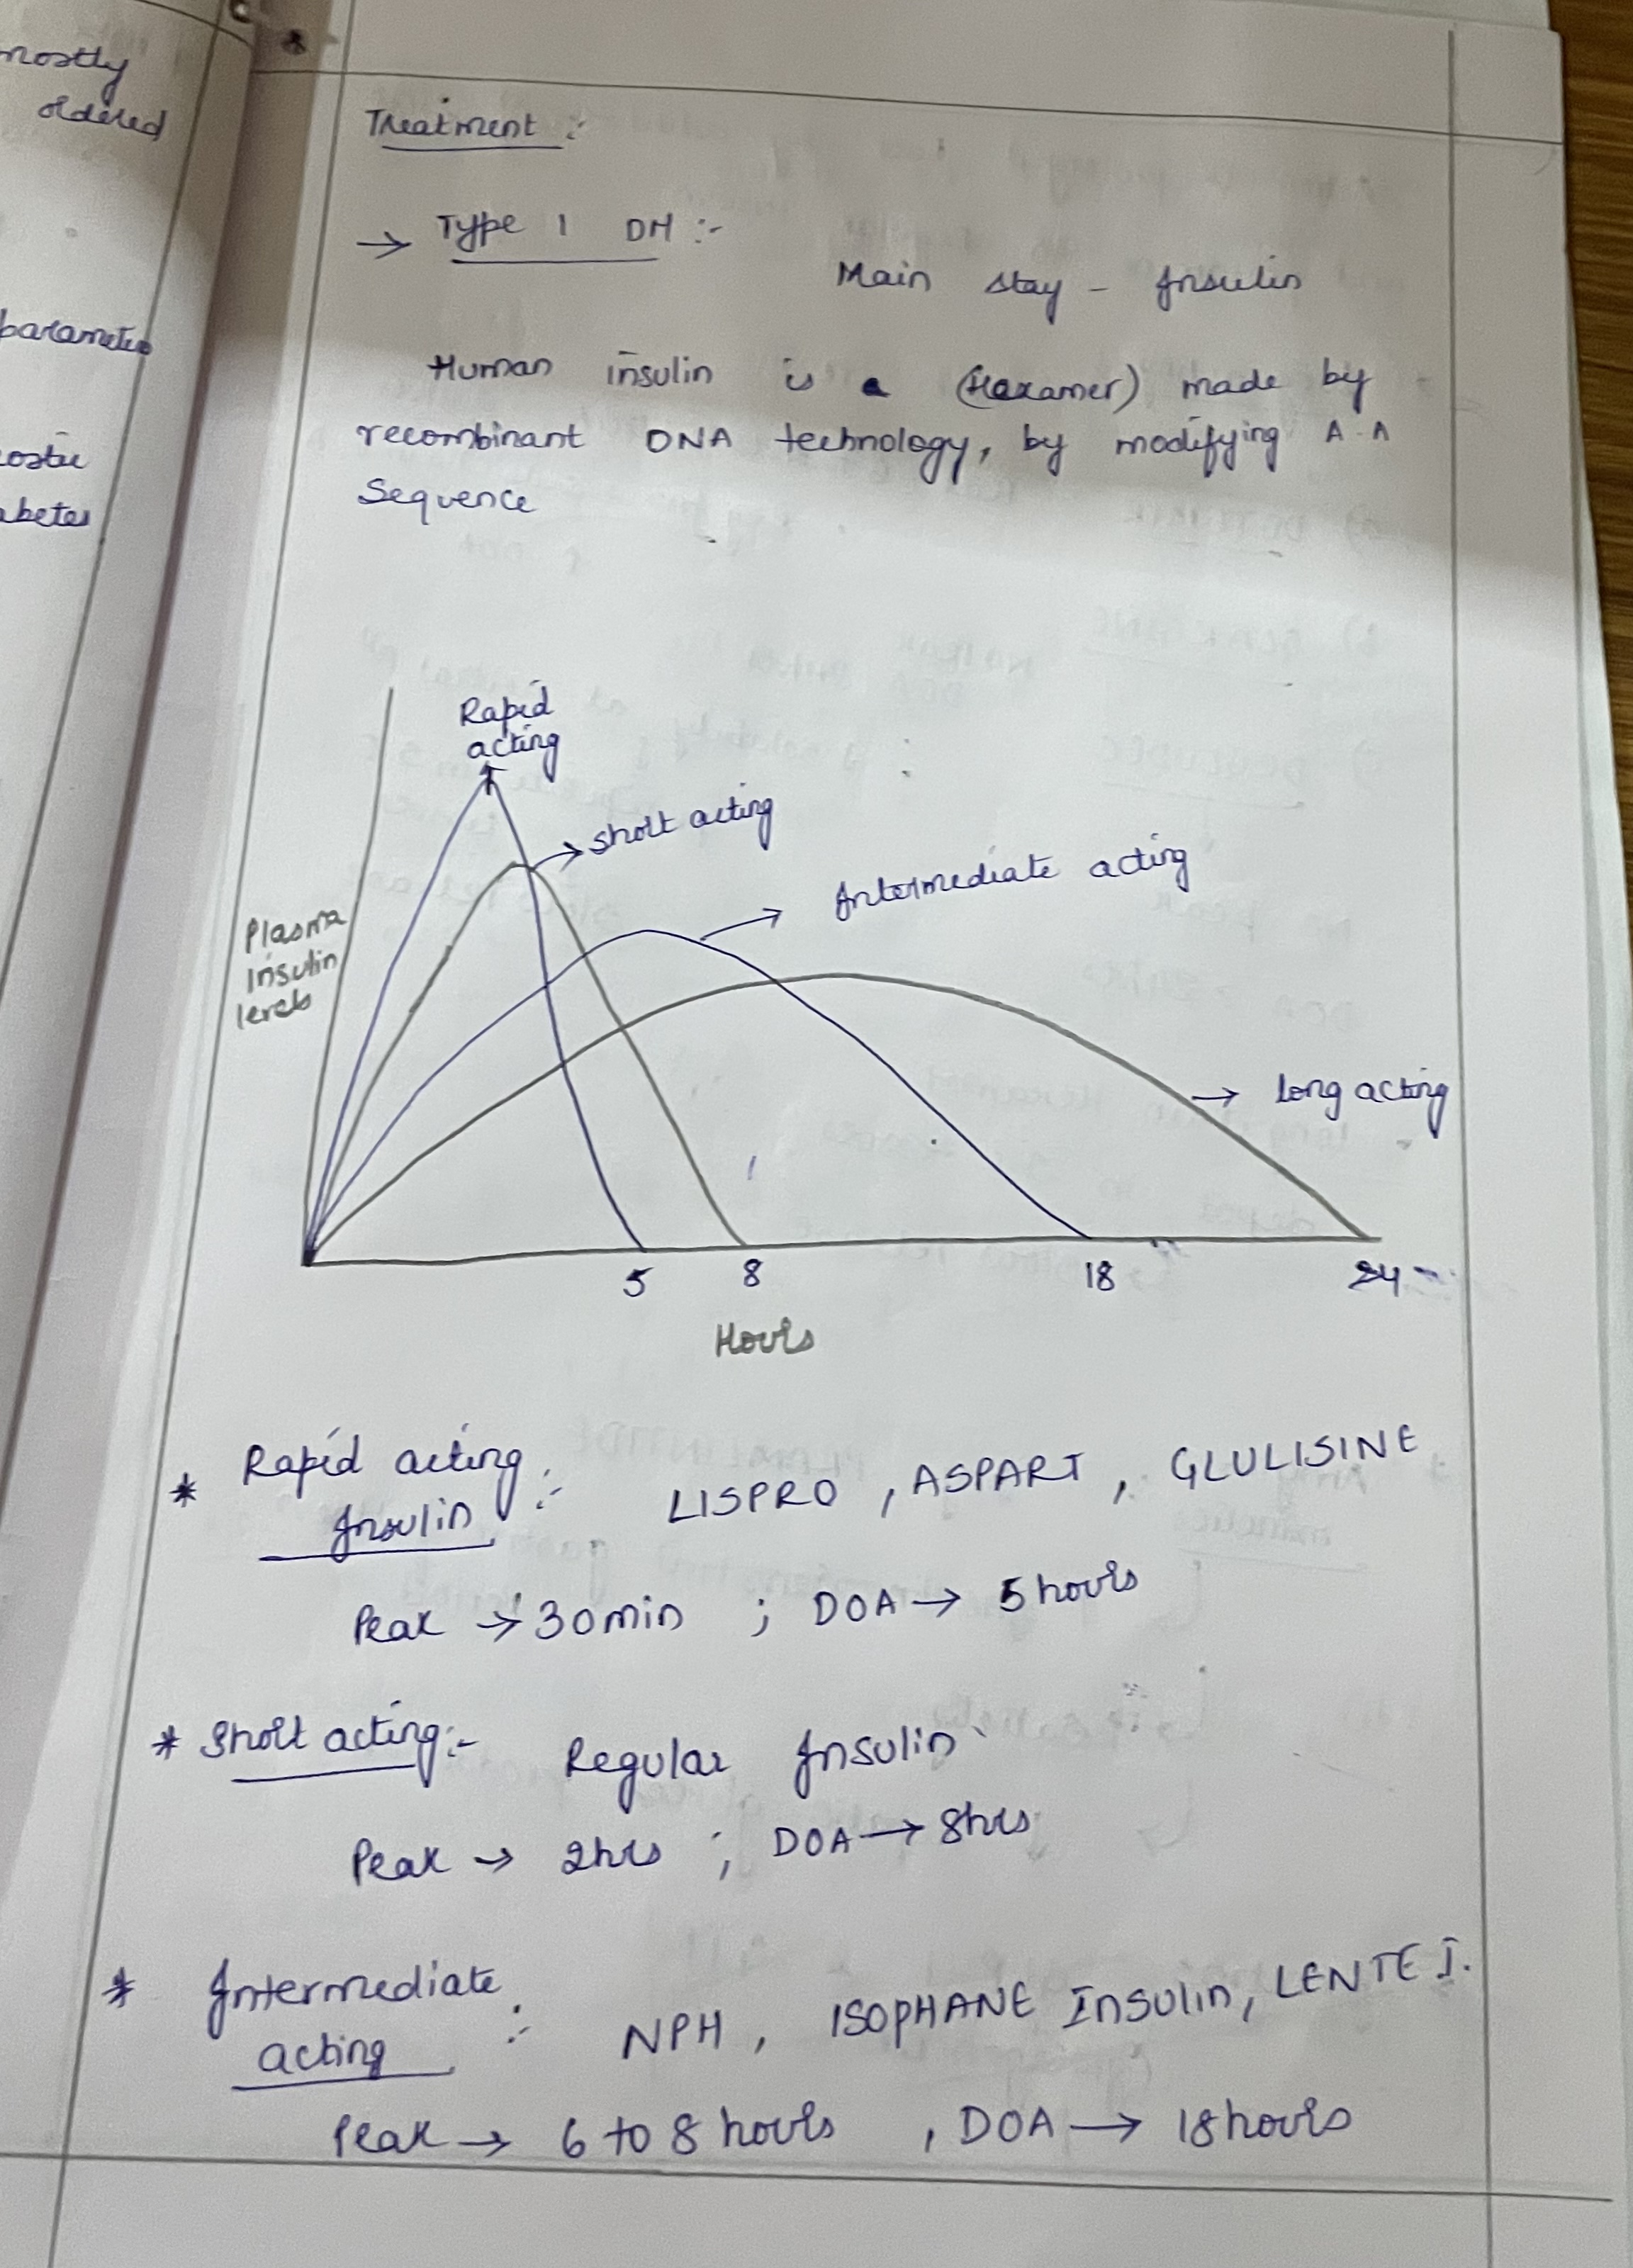 mostly
ordered
parameter
Treatment :-
→ Type 1 DM :-
Main stay - Insulin
Human insulin is a (Hexamer) made by
recombinant DNA technology, by modifying A.A
Sequence
Rapid
acting
short acting
Intermediate acting
Plasma
insulin
levels
long acting
5 8 18 24
Hours
* Rapid acting
Insulin :- LISPRO, ASPART, GLULISINE
Peak → 30min ; DOA → 5 hours
* Short acting :- Regular Insulin
Peak → 2hrs ; DOA → 8hrs
* Intermediate
acting :- NPH, ISOPHANE Insulin, LENTE I.
Peak → 6 to 8 hours , DOA → 18 hours